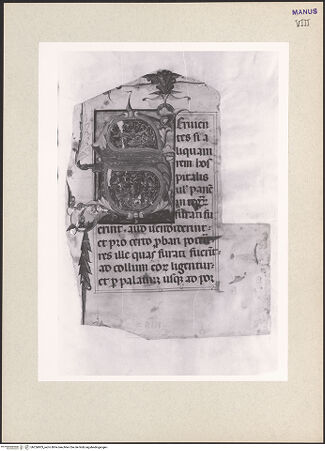 MANUS
VIII
eruien
tes si a
liquam
rem hos
pitalis
ul' pane
furati fu
erint. aud uendiderint
et pro certo
res ille quas furati fuerit
ad collum eor ligentur
et p palatiu usq; ad por